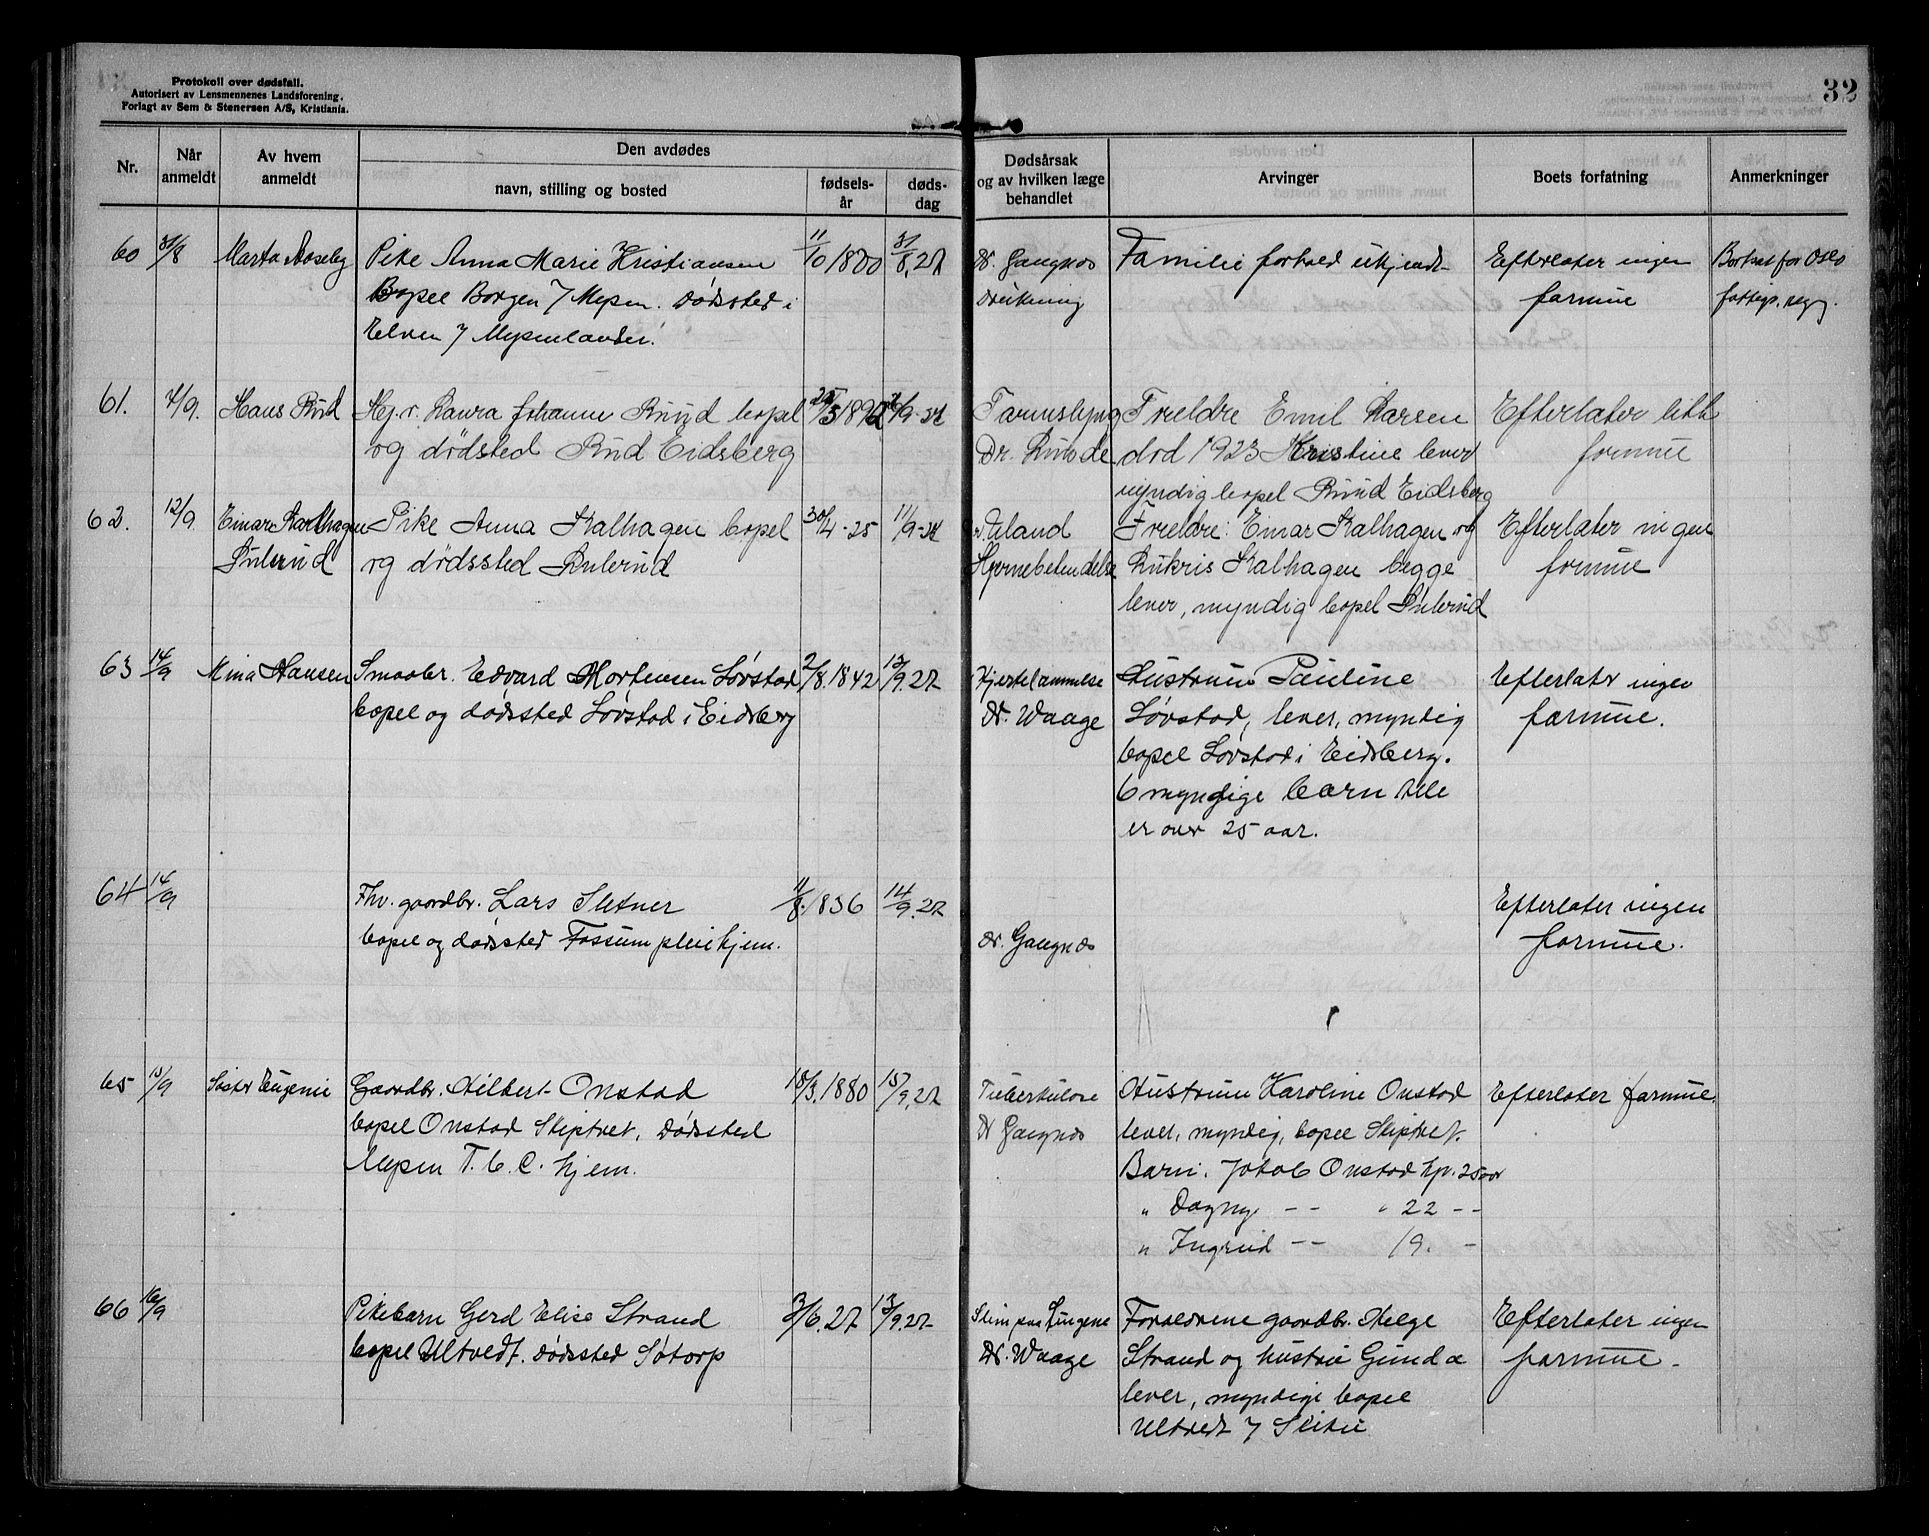 Protokoll over dødsfall.
Autorisert av Lensmennenes Landsforening.
Forlagt av Sem & Stenersen A/S, Kristiania.
32
Nr.
Når anmeldt
Av hvem anmeldt
Den avdødes
navn, stilling og bosted
fødsels-år
døds-dag
Dødsårsak og av hvilken læge behandlet
Arvinger
Boets forfatning
Anmerkninger
60 31/8 Marta Aaseby Pike Anna Marie Kristiansen 11/10 1880 31/8.27 Dr. Gangnæs Familie forhold ukjendt Efterlater ingen Bortsat for Oslo
Bopel Borgen i Mysen. Dødssted i Drukning formue
Elven i Mysenlandet.
61. 7/9. Hans Rud Hj.v. Laura Johanne Ruud bopel 25/5 1892 Foreldre Emil Larsen Efterlater litt
og dødsted Rud Eidsberg Dr. død 1923 Kristine lever formue
myndig bopel Ruud Eidsberg
62. 12/9. Einar Kalhagen Pike Anna Kalhagen bopel 30/4-25 11/9 Foreldre: Einar Kalhagen og Efterlater ingen
og dødssted Hjernebetendelse Kalhagen begge formue
lever, myndig bopel
63 14/9 Mina Hansen Smaabr. Edvard Mortensen Løvstad 2/8.1842 13/9.27 Hjertelammelse Hustrum Pauline Efterlater ingen
bopel og dødssted Løvstad i Eidsberg Dr. Waage Løvstad, lever, myndig formue.
bopel Løvstad i Eidsberg.
6 myndige barn Alle
er over 25 aar.
64 14/9 Fhv. gaardbr. Lars Sletner 11/8.1836 14/9.27 Efterlater ingen
bopel og dødssted Fossum pleiehjem. Dr. Gangnæs formue.
65 15/9 Søster Eugenie Gaardbr. Hilbert Onstad 18/3.1880 15/9.27 Tuberkulose Hustrum Karoline Onstad Efterlater formue.
bopel Onstad Skiptvet, Dødssted Dr Gangnæs lever, myndig, bopel Skiptvet.
Mysen T.b.C. hjem. Barn: Jakob Onstad 25 aar
" Dagny - - " 22 - -
" Ingrid - - 19. -
66 16/9 Pikebarn Gerd Elise Strand 3/6.27 13/9.27 Slim paa Lungene Foreldrene gaardbr. Helge Efterlater ingen
bopel Ultvedt. Dødssted Søtorp Dr. Waage Strand og hustru Gunda formue.
lever, myndige bopel
Ultvedt i